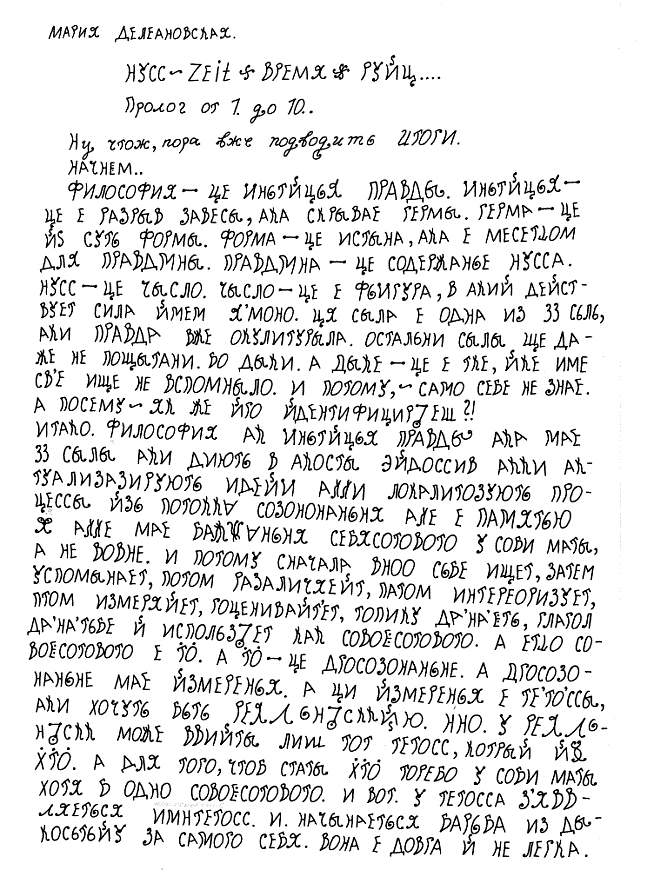 МАРИЯ ДЕЛЕАНОВСКАЯ.
НУСС ~ ZEit & ВРЕМЯ & РУЙЦ....
Пролог от 1. до 10..
Ну, чтож, пора вже подводить ИТОГИ.
НАЧНЕМ..
ФИЛОСОФИЯ — ЦЕ ИНЬТІЙЦЬЯ ПРАВДЫ. ИНЬТІЙЦЬЯ —
ЦЕ Е РАЗРЫВ ЗАВЕСЫ, АКА СКРЫВАЕ ГЕРМЫ. ГЕРМА — ЦЕ
СУТЬ ФОРМЫ. ФОРМА — ЦЕ ИСТЫНА, АКА Е
ДЛЯ — ЦЕ СОДЕРЖАНЬЕ НУССА.
НУСС — ЦЕ ЧЫСЛО. ЧЫСЛО — ЦЕ Е ФЫГУРА, В АКИЙ ДЕЙСТ-
ВУЕТ СИЛА ЙМЕМ Я'МОНО. ЦЯ СЫЛА Е ОДНА ИЗ 33 СЫЛЬ,
АКИ ПРАВДА ВЖЕ ОКУЛИТУРЫЛА. ОСТАЛЬНИ СЫЛЫ ЩЕ ДА-
ЖЕ НЕ ПОЩЫТАНИ. ВО ДЫКИ. А ДЫКЕ — ЦЕ Е ТКЕ, ЙКЕ ИМЕ
СВ'Е ИЩЕ НЕ ВСПОМНЫЛО. И ПОТОМУ, ~ САМО СЕБЕ НЕ ЗНАЕ.
А ПОСЕМУ ~ ЯК ЖЕ ЙГО ?!
ИТАКО. ФИЛОСОФИЯ АК ИНЬТІЙЦЬЯ ПРАВДЫ АКА МАЕ
33 СЫЛЫ АКИ ДИЮТЬ В АКОСТЫ ЭЙДОССИВ АККИ АК-
ТУАЛИЗАЗИРУЮТЬ ИДЕЙИ ЛОКАЛИТОЗУЮТЬ ПРО-
ЦЕССЫ ЙЗЬ СОЗОНОНАНЬНЯ АЛЕ Е ПАМЯТЬЮ
Я МАЕ СЕБЯСОТОВОТО У СОБИ МАТЫ,
А НЕ ВОВНЕ. И ПОТОМУ СНАЧАЛА ВНОО СЬБЕ ИЩЕТ, ЗАТЕМ
УСПОМЫНАЕТ, ПОТОМ РАЗАЛИЧХЕЙТ, ПАТОМ ИНТЕРЕОРИЗУЕТ,
ПТОМ ИЗМЕРЯЙЕТ, ГОЦЕНИВАЙТЕТ, ТОПИКУ ДА'НА'ЕТЬ, ГЛАГОЛ
ДА'НА'ТЬВЕ Й КАК СОВОЕСОТОВОТО. А ЕТЩО СО-
ВОЕСОТОВОТО Е ТО. А ТО — ЦЕ ДРОСОЗОНАНЬНЕ. А ДРОСОЗО-
НАНЬНЕ МАЕ ЙЗМЕРЕНЬЯ. А ЦИ ЙЗМЕРЕНЬЯ Е ТЕ'ТО'ССЫ,
АКИ ХОЧУТЬ ВЫТЬ ННО. У
МОЖЕ ВВИЙТЫ ЛИШ ТОТ ТЕТОСС, КОТРЫЙ
ХТО. А ДЛЯ ТОГО, ЧТОБ СТАТЫ ХТО ТОРЕБО У СОБИ МАТЫ
ХОТЯ В ОДНО СОВОЕСОТОВОТО. И ВОТ. У ТЕТОССА З'ЯВВ-
ЛЯЕТЬСЯ ИМНТЕТОСС. И. НАЧЫНАЕТЬСЯ ВАРЬВА ИЗ ДЫ-
КОСЬТЬЙУ ЗА САМОГО СЕБЯ. ВОНА Е ДОВГА Й НЕ ЛЕГКА.